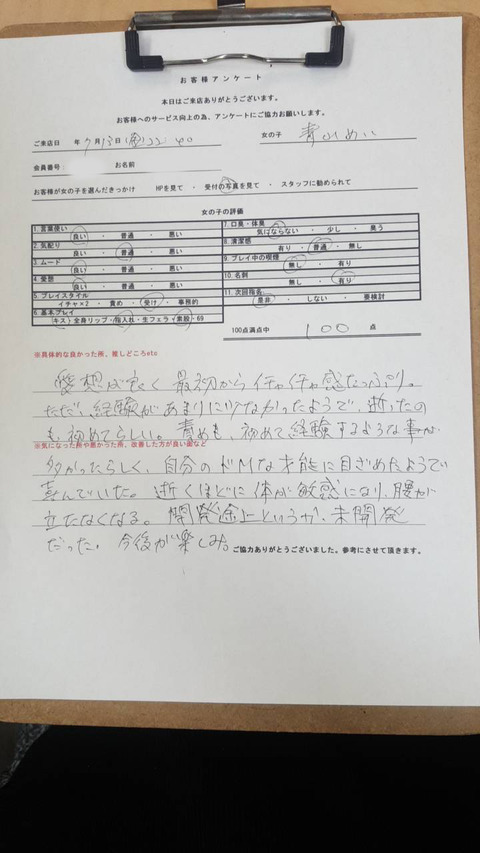 お客様アンケート
本日はご来店ありがとうございます。
お客様へのサービス向上の為、アンケートにご協力お願いします。
ご来店日 年 9月13日(金)22:40 女の子 青山めい
会員番号: お名前
お客様が女の子を選んだきっかけ HPを見て ・ 受付の写真を見て ・ スタッフに勧められて
女の子の評価
1.言葉使い
良い ・ 普通 ・ 悪い
2.気配り
良い ・ 普通 ・ 悪い
3.ムード
良い ・ 普通 ・ 悪い
4.愛想
良い ・ 普通 ・ 悪い
5.プレイスタイル
イチャ×2 ・ 責め ・ 受け ・ 事務的
6.基本プレイ
キス・全身リップ・指入れ・生フェラ・素股・69
7.口臭・体臭
気にならない ・ 少し ・ 臭う
8.清潔感
有り ・ 普通 ・ 無し
9.プレイ中の喫煙
無し ・ 有り
10.名刺
無し ・ 有り
11.次回指名
是非 ・ しない ・ 要検討
100点満点中 100 点
※具体的な良かった所、推しどころetc
愛想が良く最初からイチャイチャ感たっぷり。
ただ、経験があまりに少なかったようで、逝ったの
も初めてらしい。責めも、初めて経験するような事が
※気になった所や悪かった所、改善した方が良い面など
多かったらしく、自分のドMな才能に目ざめたようで
喜んでいた。逝くほどに体が敏感になり、腰が
立たなくなる。開発途上というか、未開発
だった。今後が楽しみ。
ご協力ありがとうございました。参考にさせて頂きます。